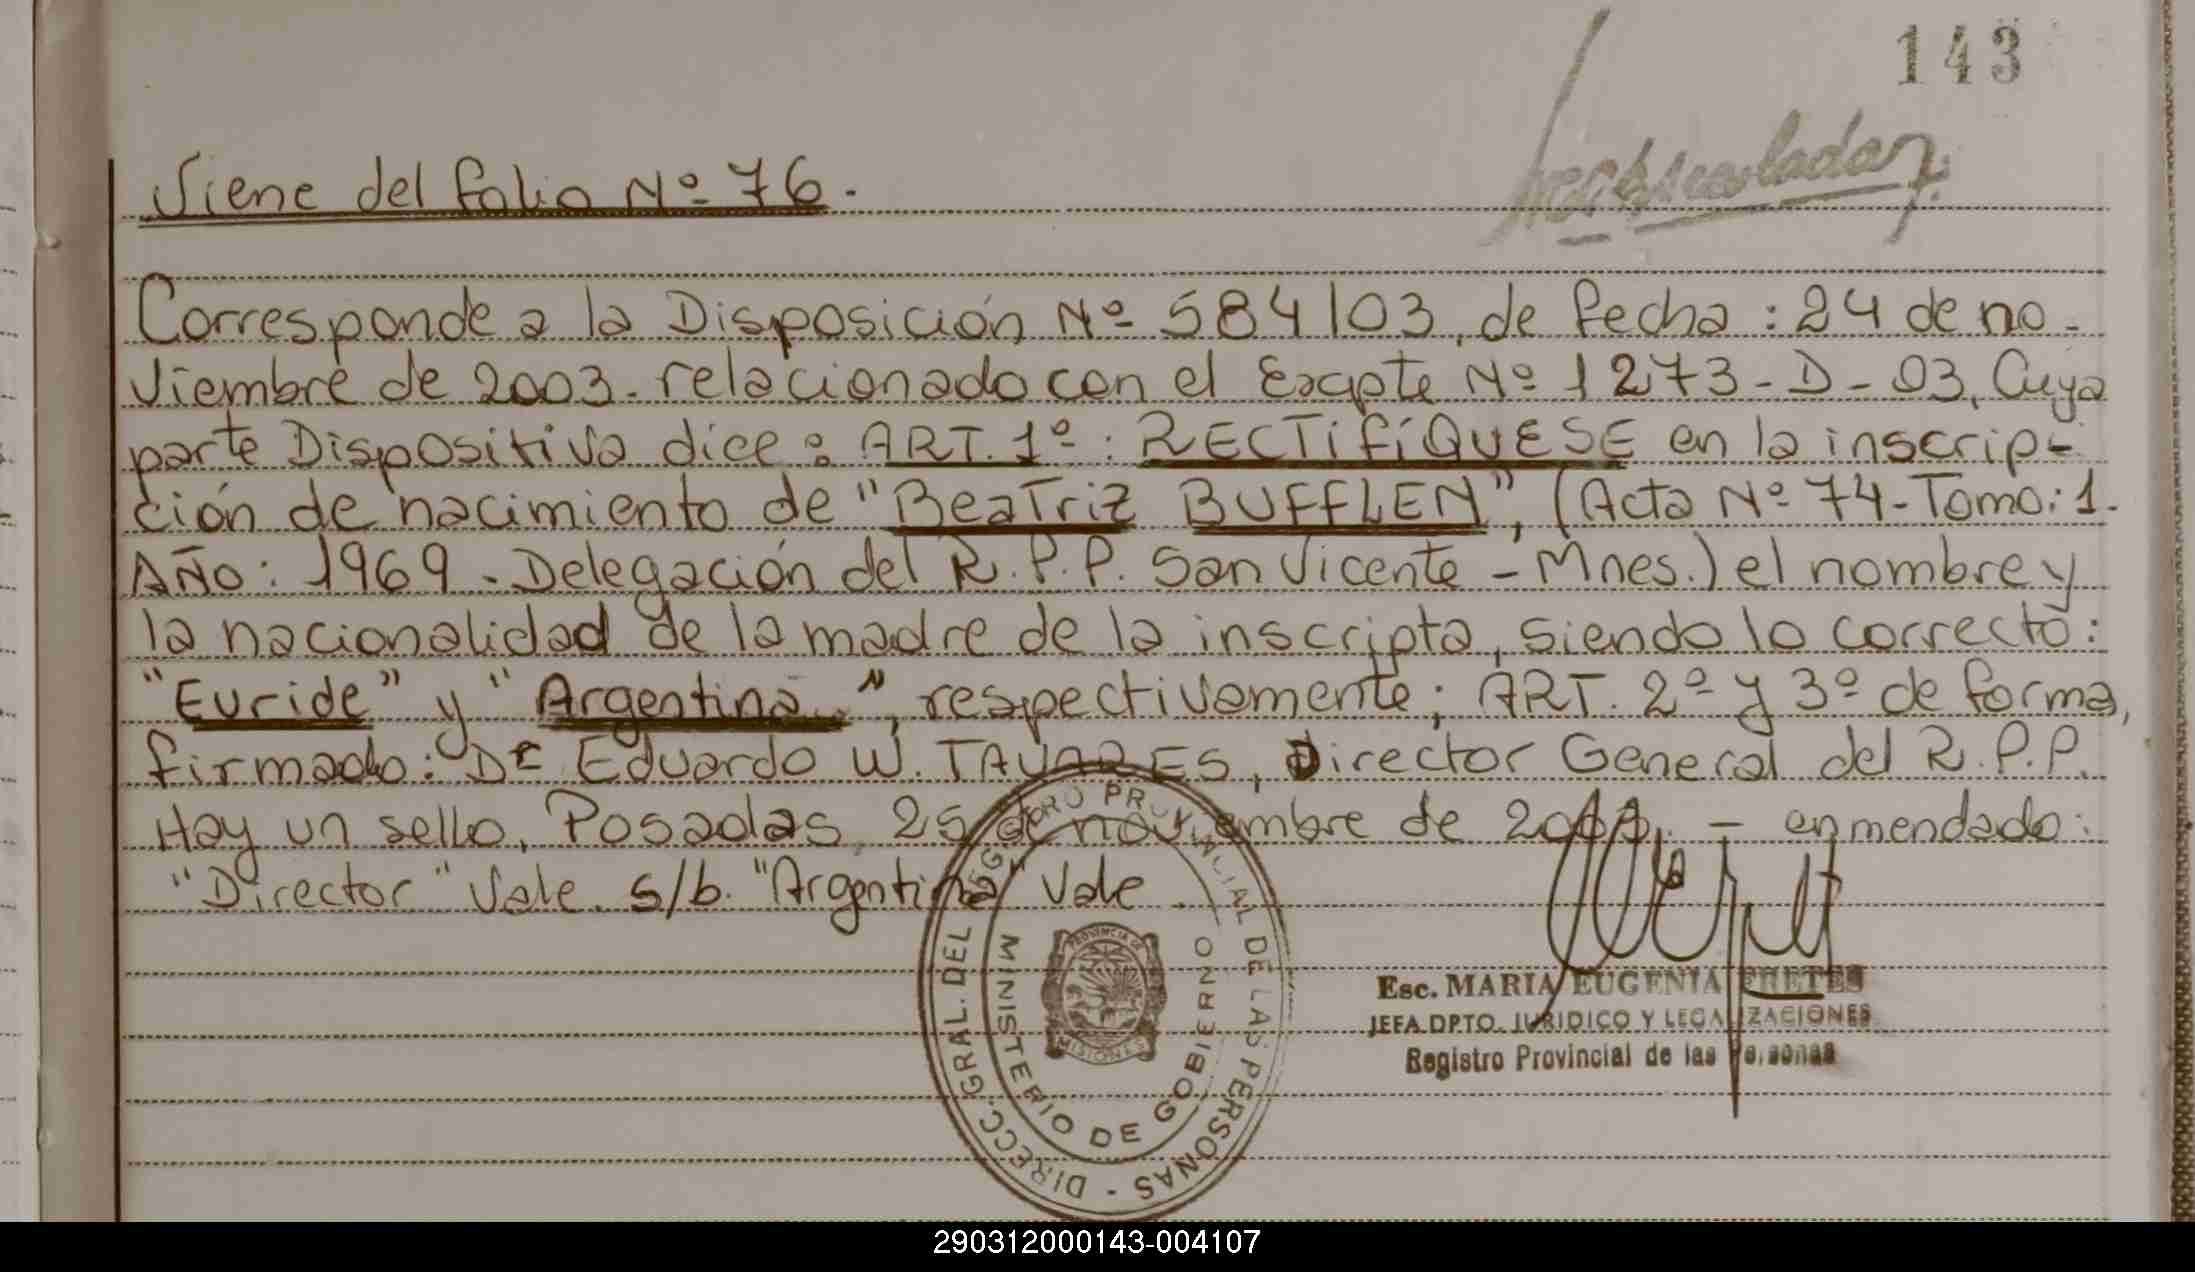 143
Viene del folio Nº 76.
Corresponde a la Disposición Nº 584/03, de fecha: 24 de no-
viembre de 2003. relacionado con el Expte Nº 1273-D-03, Cuya
parte Dispositiva dice: ART. 1º: RECTIFÍQUESE en la inscrip-
ción de nacimiento de "Beatriz BUFFLEN", (Acta Nº 74-Tomo: 1.
Año: 1969. Delegación del R.P.P. San Vicente - Mnes.) el nombre y
la nacionalidad de la madre de la inscripta, siendo lo correcto:
"Euride" y "Argentina", respectivamente; ART. 2º y 3º de forma,
firmado: Dr Eduardo W. TAVARES, Director General del R.P.P.
Hay un sello. Posadas, 25 de noviembre de - enmendado:
"Director" Vale. s/b. "Argentina" Vale.
DIRECC. GRAL. DEL REGISTRO PROVINCIAL DE LAS PERSONAS -
MINISTERIO DE GOBIERNO
PROVINCIA DE
MISIONES
Esc. MARIA EUGENIA FRETES
JEFA DPTO. JURIDICO Y LEGALIZACIONES
Registro Provincial de las Personas
290312000143-004107